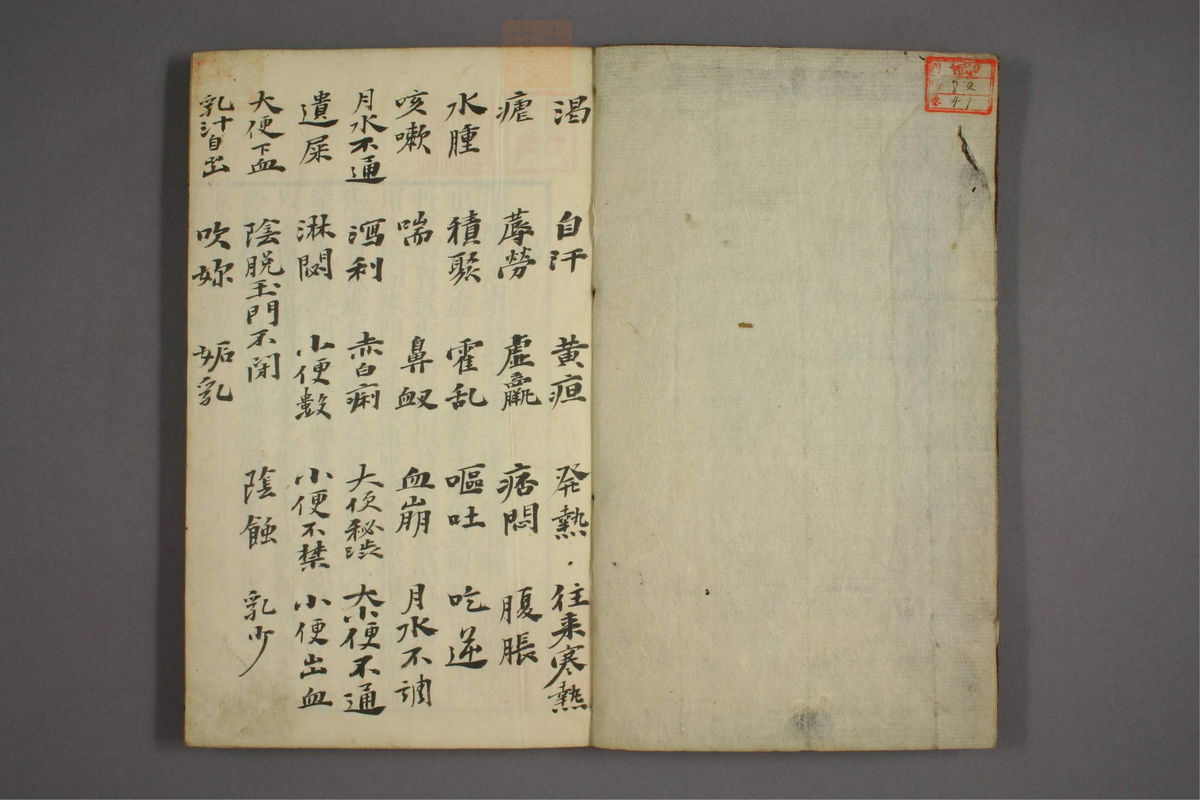 渇 自汗 黄疸 発熱 往来寒熱
瘧 蓐勞 虚羸 痞悶 腹脹
水腫 積聚 霍乱 嘔吐 吃逆
咳嗽 喘 鼻衂 血崩 月水不調
月水不通 瀉利 赤白痢 大便秘渋 大小便不通
遺屎 淋閟 小便數 小便不禁 小便出血
大便下血 陰脱玉門不閉 陰蝕 乳少
乳汁自出 吹妳 妬乳